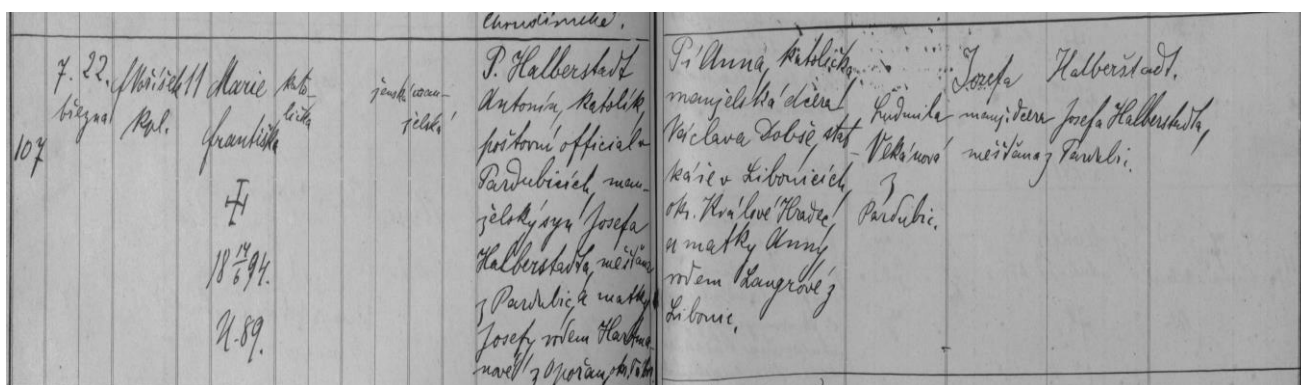 Chrudimska.
7. 22. 11 Marie kato-
března kpl. Františka lická
107
18 14/6 94.
N. 89.
ženská man-
želská
P. Halberstadt
Antonín, katolík,
poštovní official v
Pardubicích, man-
želský syn Josefa
Halberstadta, měšťana
z Pardubic, a matky
Josefy, rodem Hartma-
nové z
Pí Anna, katolička,
manželská dcera
Václava Dobše, stat-
káře v Libonicích,
okr. Králové Hradec,
a matky Anny
rodem Langrové z
Libonic.
Ludmila
Vekánová
z
Pardubic.
Josefa Halberštadt,
manž. dcera Josefa Halberstadta,
měšťana z Pardubic.